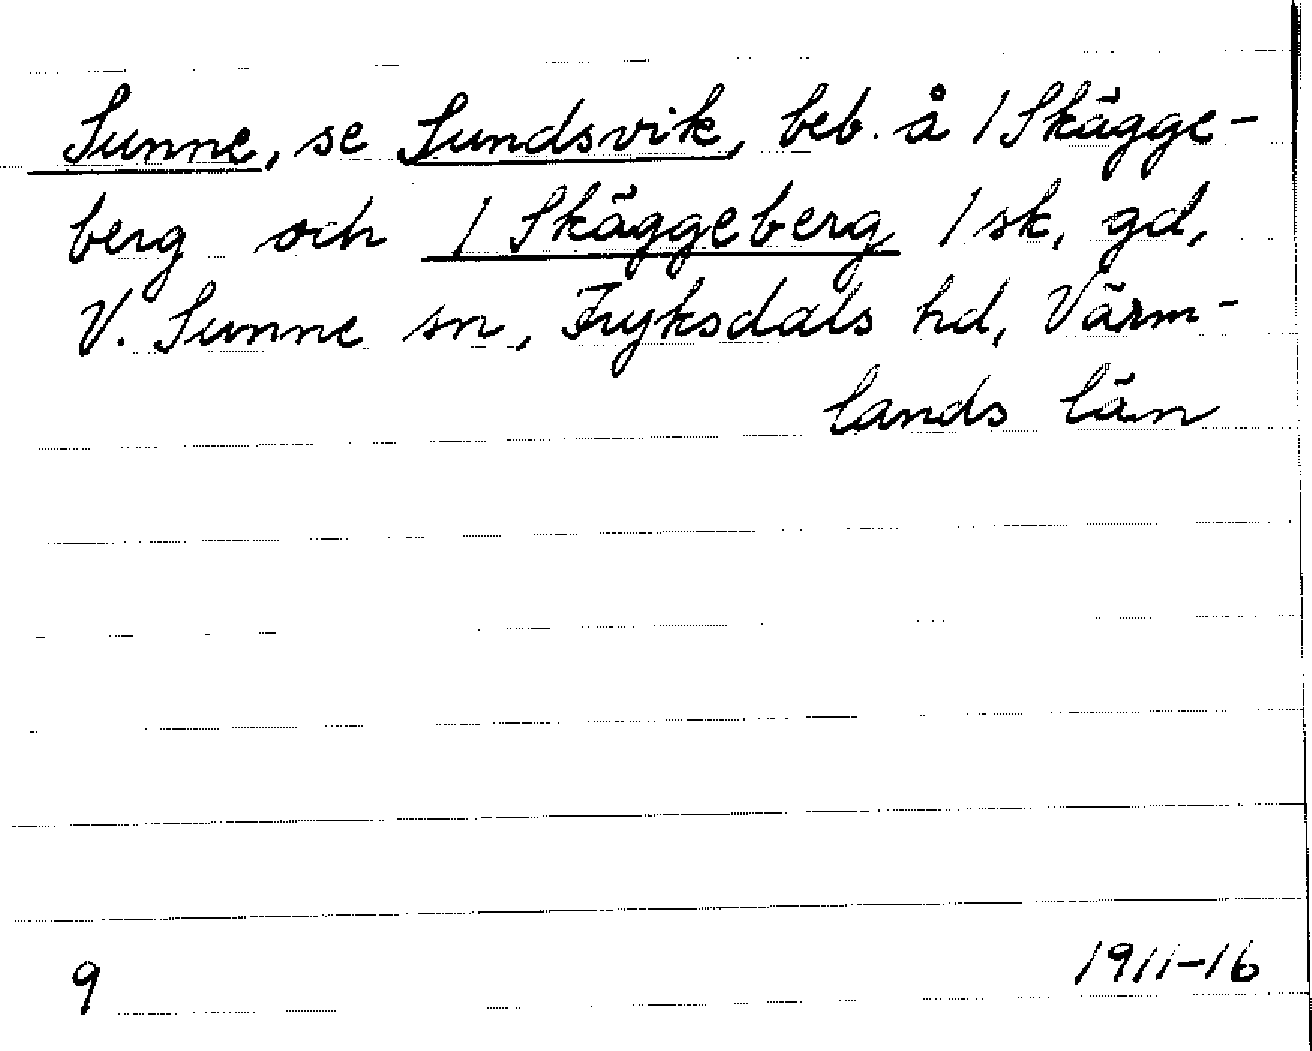 Sunne, se Sundsvik, beb. å / Skägge-
berg och / Skäggeberg / sk, gd,
V. Sunne sn, Fryksdals hd, Värm-
lands län
9 1911-16